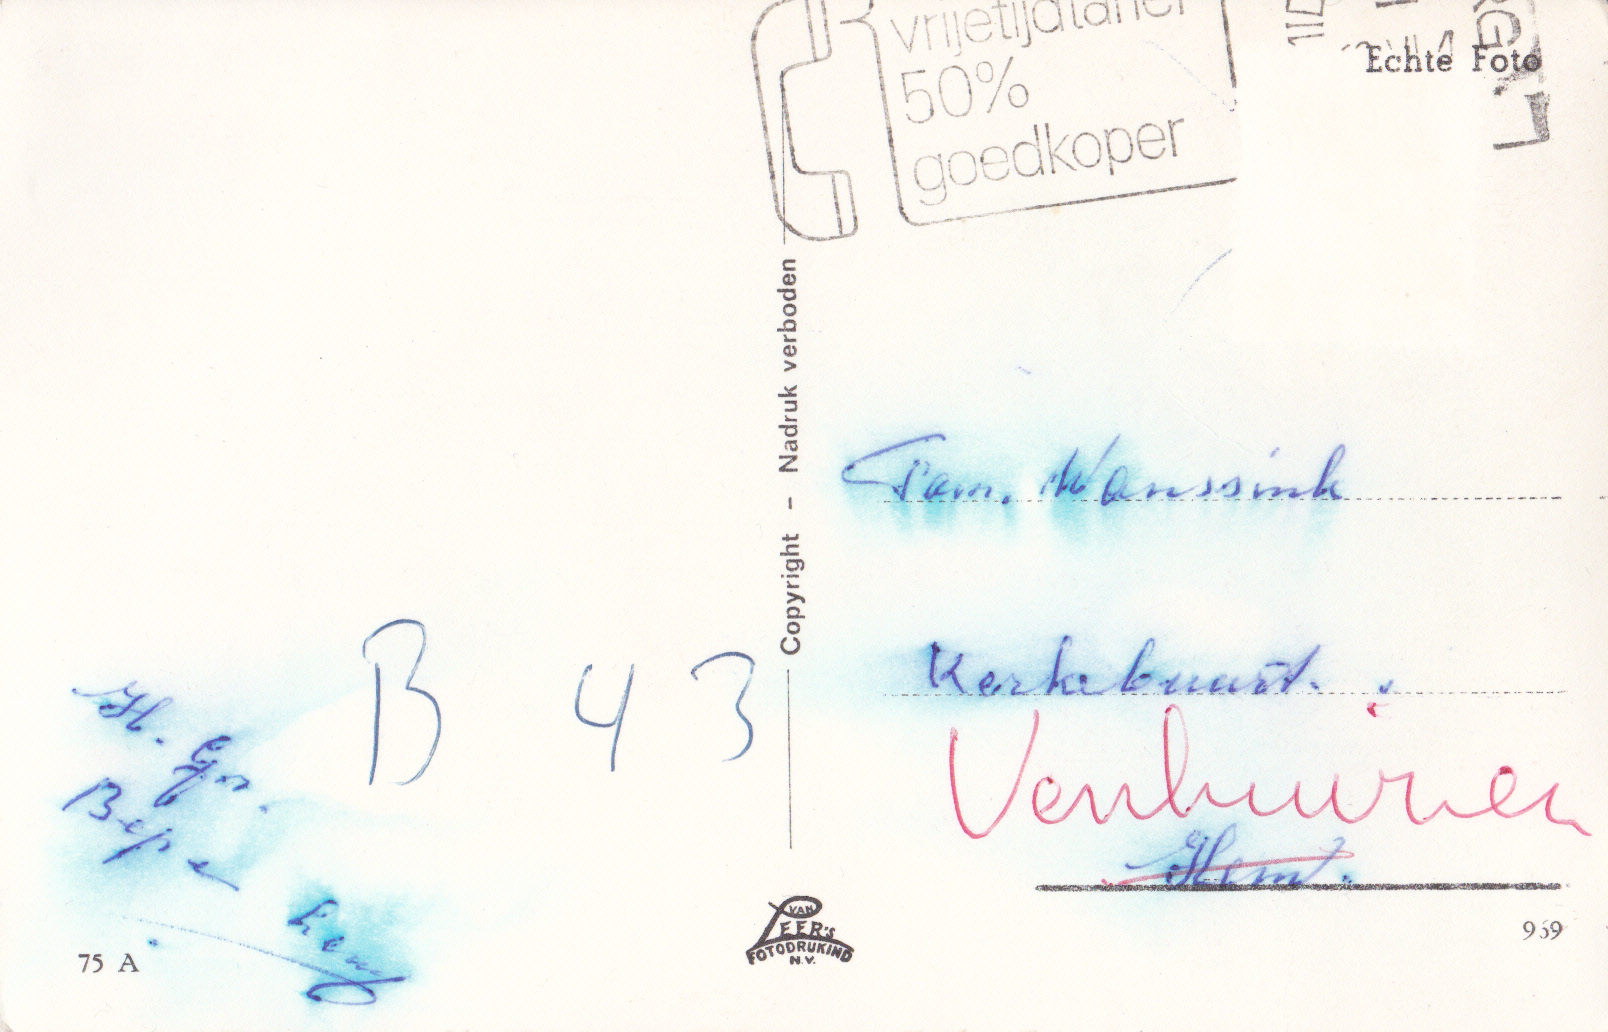 vrijetijdtarief
50%
goedkoper
Echte Foto
Copyright – Nadruk verboden
Fam. Wanssink
Kerkebuurt.
Venhuizen
Hem.
B 43
H. Gr.
Bep e
75 A
VAN
LEER'S
FOTODRUKIND
N.V.
969